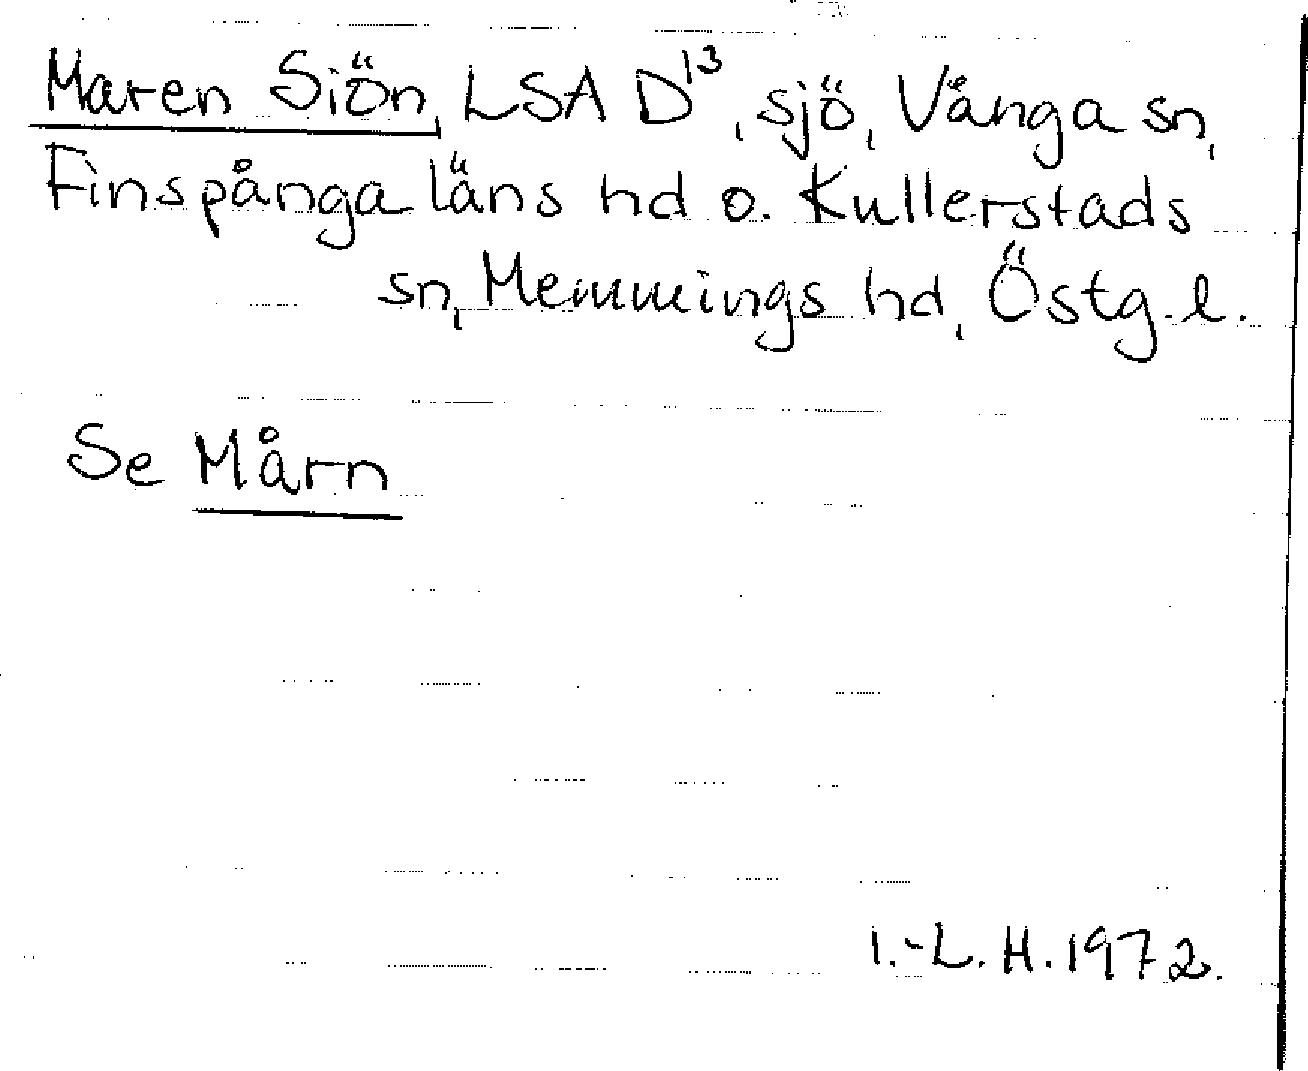 Maren Siön, LSA D¹³, sjö, Vånga sn,
Finspånga läns hd o. Kullerstads
sn, Memmings hd, Östg. l.
Se Mårn
I.-L. H. 1972.